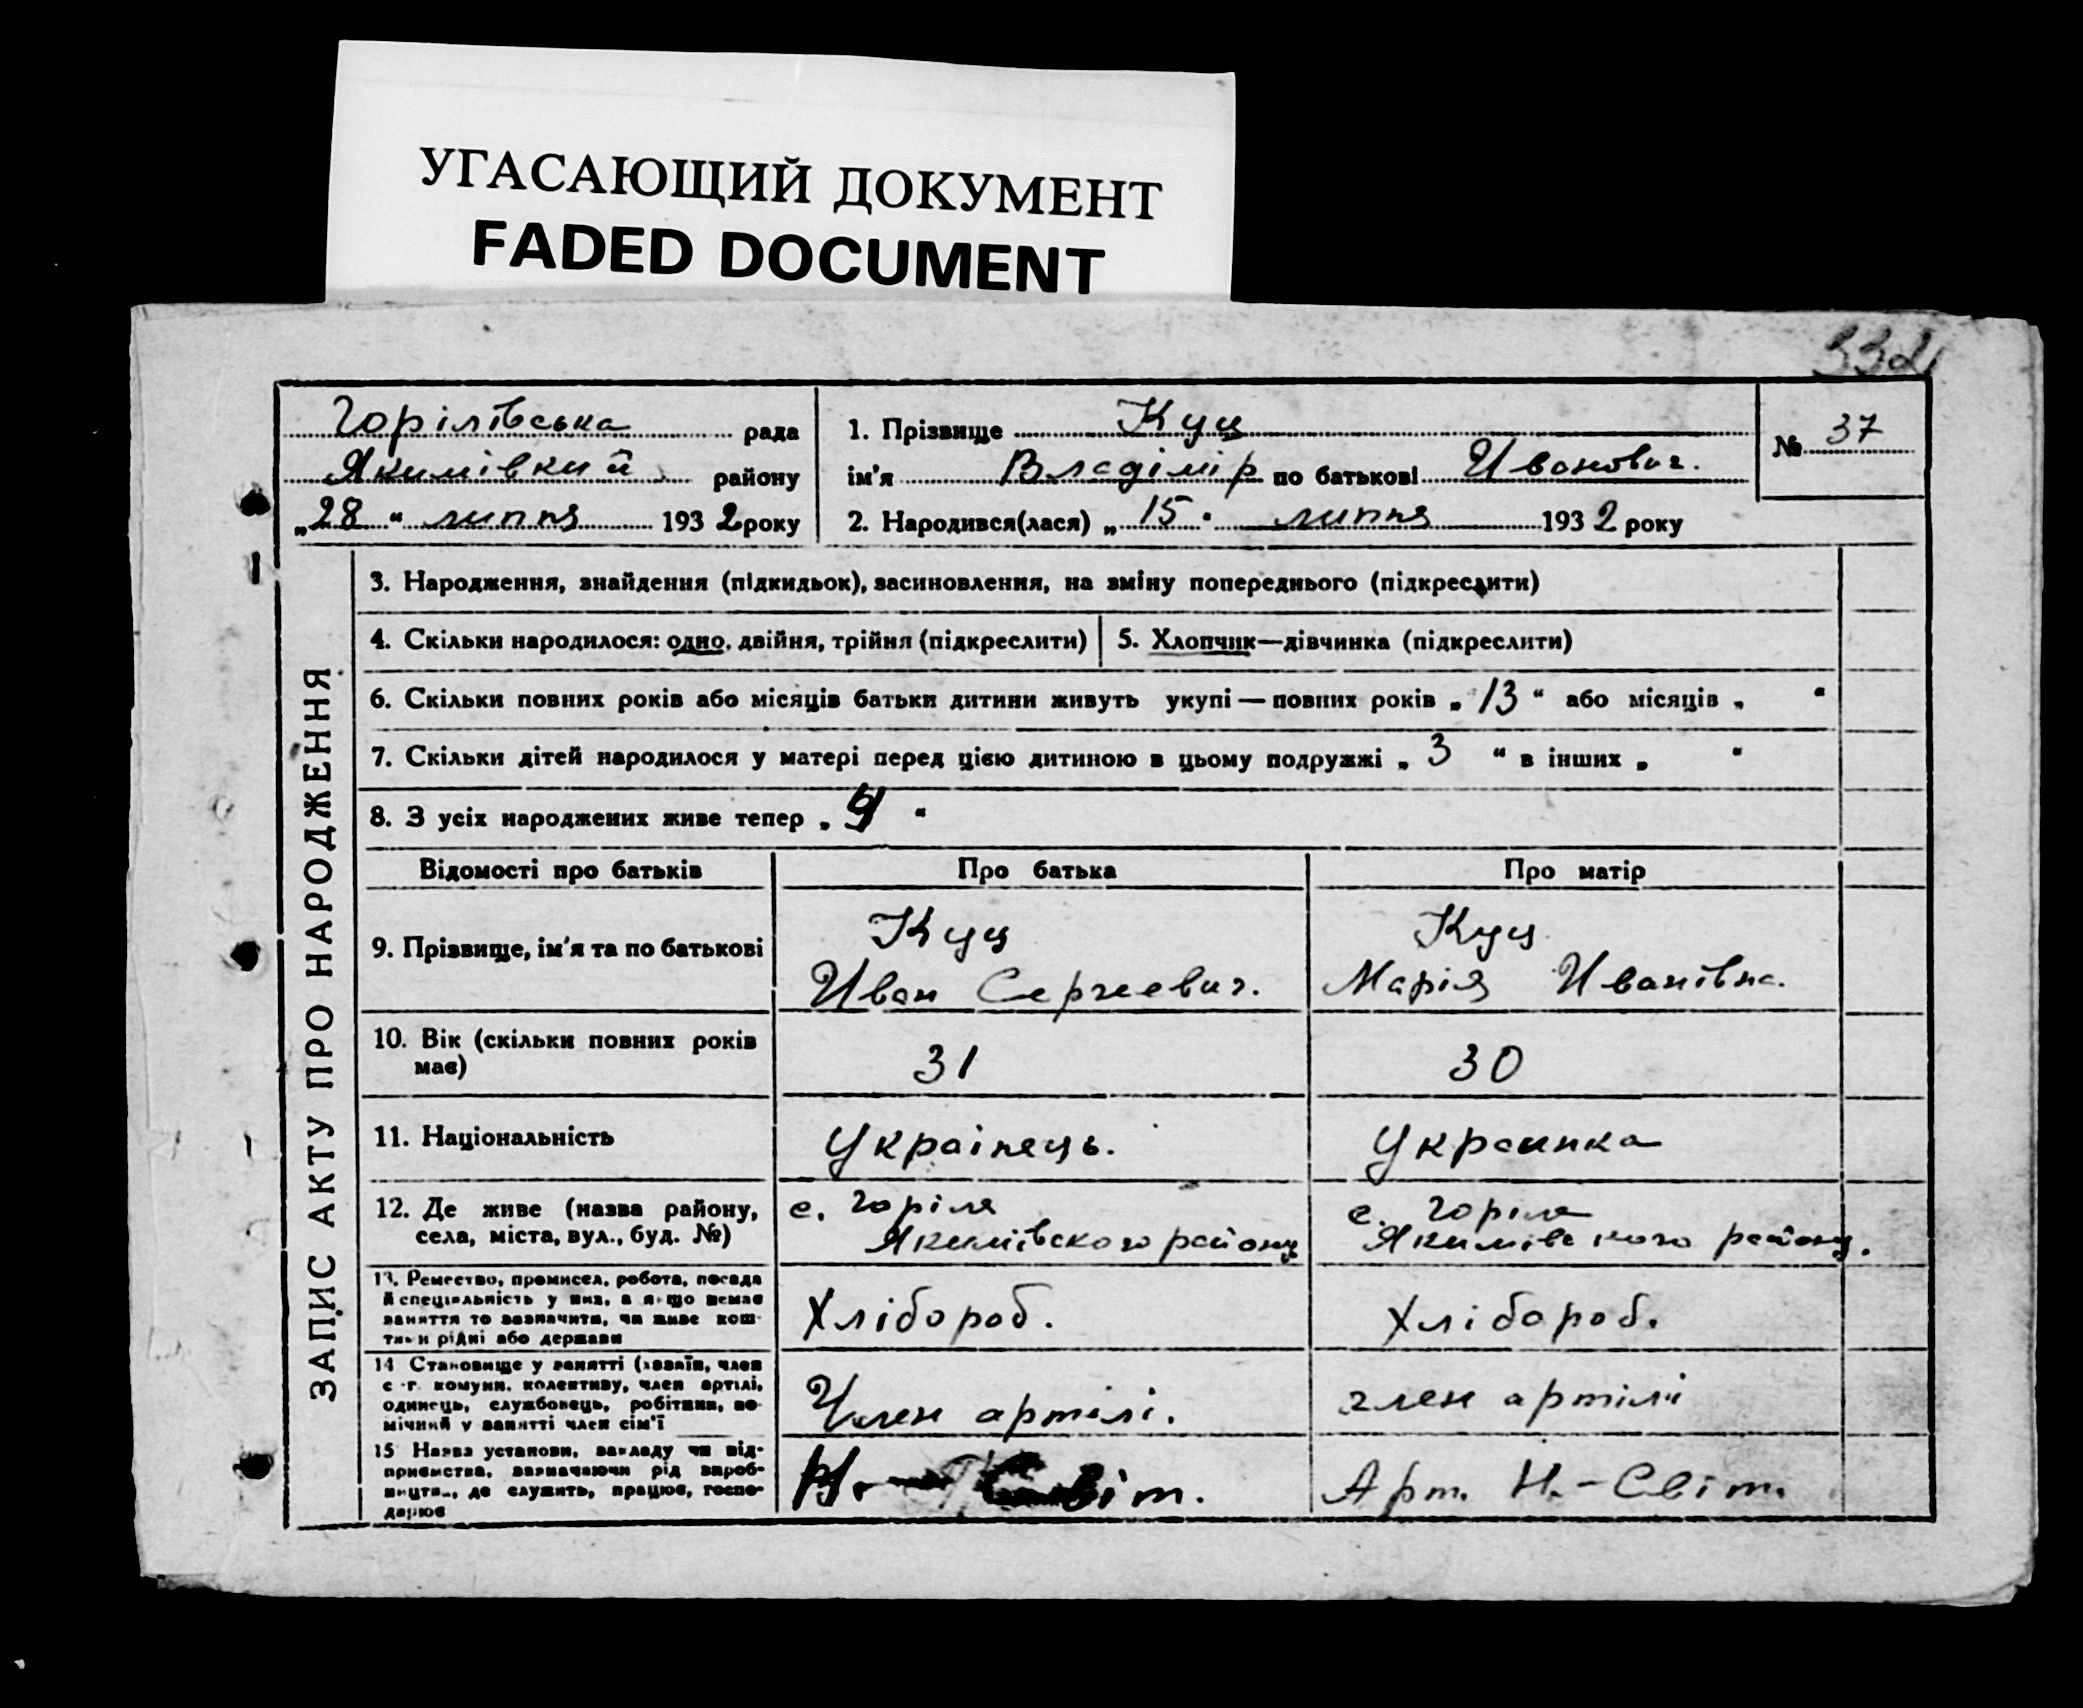 УГАСАЮЩИЙ ДОКУМЕНТ
FADED DOCUMENT
332
Горілівська рада
Якимівкий району
„28“ липня 1932 року
1. Прізвище Куц
ім'я Владімір по батькові Иванович.
2. Народився(лася) „15“ липня 1932 року
№ 37
ЗАПИС АКТУ ПРО НАРОДЖЕННЯ
3. Народження, знайдення (підкидьок), засиновлення, на зміну попереднього (підкреслити)
4. Скільки народилося: одно, двійня, трійня (підкреслити)
5. Хлопчик—дівчинка (підкреслити)
6. Скільки повних років або місяців батьки дитини живуть укупі — повних років „13“ або місяців „ “
7. Скільки дітей народилося у матері перед цією дитиною в цьому подружжі „3“ в інших „ “
8. З усіх народжених живе тепер „ “
Відомості про батьків
Про батька
Про матір
9. Прізвище, ім'я та по батькові
Куц
Иван Сергеевич.
Куц
Марія Иванівна.
10. Вік (скільки повних років
має)
31
30
11. Національність
Українець.
Украинка
12. Де живе (назва району,
села, міста, вул., буд. №)
с. Горіля
Якимівского району
с. Горіля
Якимівского району.
13. Ремество, промисел, робота, посада
й спеціяльність у них, а якщо немає
заняття то зазначити, чи живе кош-
тами рідні або держави
Хлібороб.
Хлібороб.
14 Становище у занятті (хазяїн, член
с.-г. комуни, колективу, член артілі,
одинець, службовець, робітник, по-
мічний у занятті член сім'ї
Член артілі.
член артілі
15 Назва установи, закладу чи від-
приємства, зазначаючи рід вироб-
ництва, де служить, працює, госпо-
дарює
Н. Світ.
Арт. Н.-Світ.